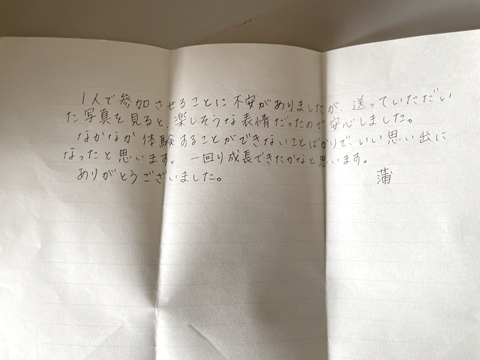 1人で参加させることに不安がありましたが、送っていただい
た写真を見ると、楽しそうな表情だったので安心しました。
なかなか体験することができないことばかりで、いい思い出に
なったと思います。一回り成長できたかなと思います。
ありがとうございました。
蒲